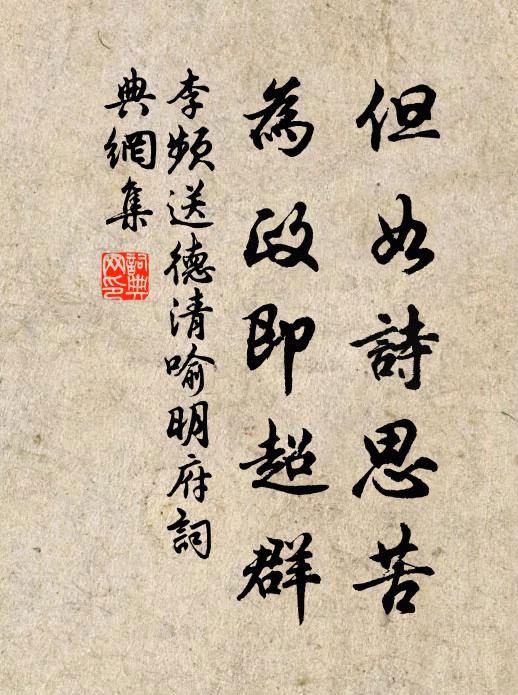 但如詩思苦
為政即超群
李頻送德清喻明府詞
典網集
詞典
网印